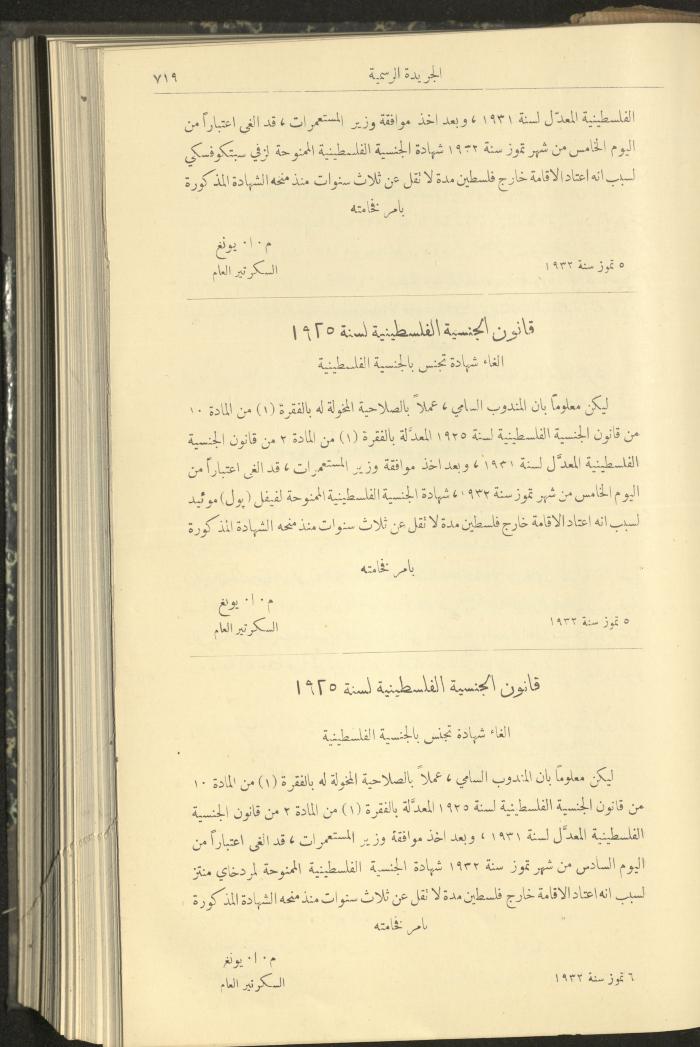 الجريدة الرسمية ٧١٩
الفلسطينية المعدّل لسنة ١٩٣١ ، وبعد اخذ موافقة وزير المستعمرات ، قد الغى اعتباراً من
اليوم الخامس من شهر تموز سنة ١٩٣٢ شهادة الجنسية الفلسطينية الممنوحة لزفي سبتكوفسكي
لسبب انه اعتاد الاقامة خارج فلسطين مدة لا تقل عن ثلاث سنوات منذ منحه الشهادة المذكورة
بامر فخامته
م٠ا٠ يونغ
السكرتير العام
٥ تموز سنة ١٩٣٢
قانون الجنسية الفلسطينية لسنة ١٩٢٥
الغاء شهادة تجنس بالجنسية الفلسطينية
ليكن معلوماً بان المندوب السامي ، عملاً بالصلاحية المخولة له بالفقرة (١) من المادة ١٠
من قانون الجنسية الفلسطينية لسنة ١٩٢٥ المعدَّلة بالفقرة (١) من المادة ٢ من قانون الجنسية
الفلسطينية المعدَّل لسنة ١٩٣١ ، وبعد اخذ موافقة وزير المستعمرات ، قد الغى اعتباراً من
اليوم الخامس من شهر تموز سنة ١٩٣٢، شهادة الجنسية الفلسطينية الممنوحة لفيفل (پول) موئيد
لسبب انه اعتاد الاقامة خارج فلسطين مدة لا تقل عن ثلاث سنوات منذ منحه الشهادة المذكورة
بامر فخامته
م٠ا٠ يونغ
السكرتير العام
٥ تموز سنة ١٩٣٢
قانون الجنسية الفلسطينية لسنة ١٩٢٥
الغاء شهادة تجنس بالجنسية الفلسطينية
ليكن معلوماً بان المندوب السامي ، عملاً بالصلاحية المخولة له بالفقرة (١) من المادة ١٠
من قانون الجنسية الفلسطينية لسنة ١٩٢٥ المعدَّلة بالفقرة (١) من المادة ٢ من قانون الجنسية
الفلسطينية المعدَّل لسنة ١٩٣١ ، وبعد اخذ موافقة وزير المستعمرات ، قد الغى اعتباراً من
اليوم السادس من شهر تموز سنة ١٩٣٢ شهادة الجنسية الفلسطينية الممنوحة لمردخاي منتز
لسبب انه اعتاد الاقامة خارج فلسطين مدة لا تقل عن ثلاث سنوات منذ منحه الشهادة المذكورة
بامر فخامته
م٠ا٠ يونغ
السكرتير العام
٦ تموز سنة ١٩٣٢